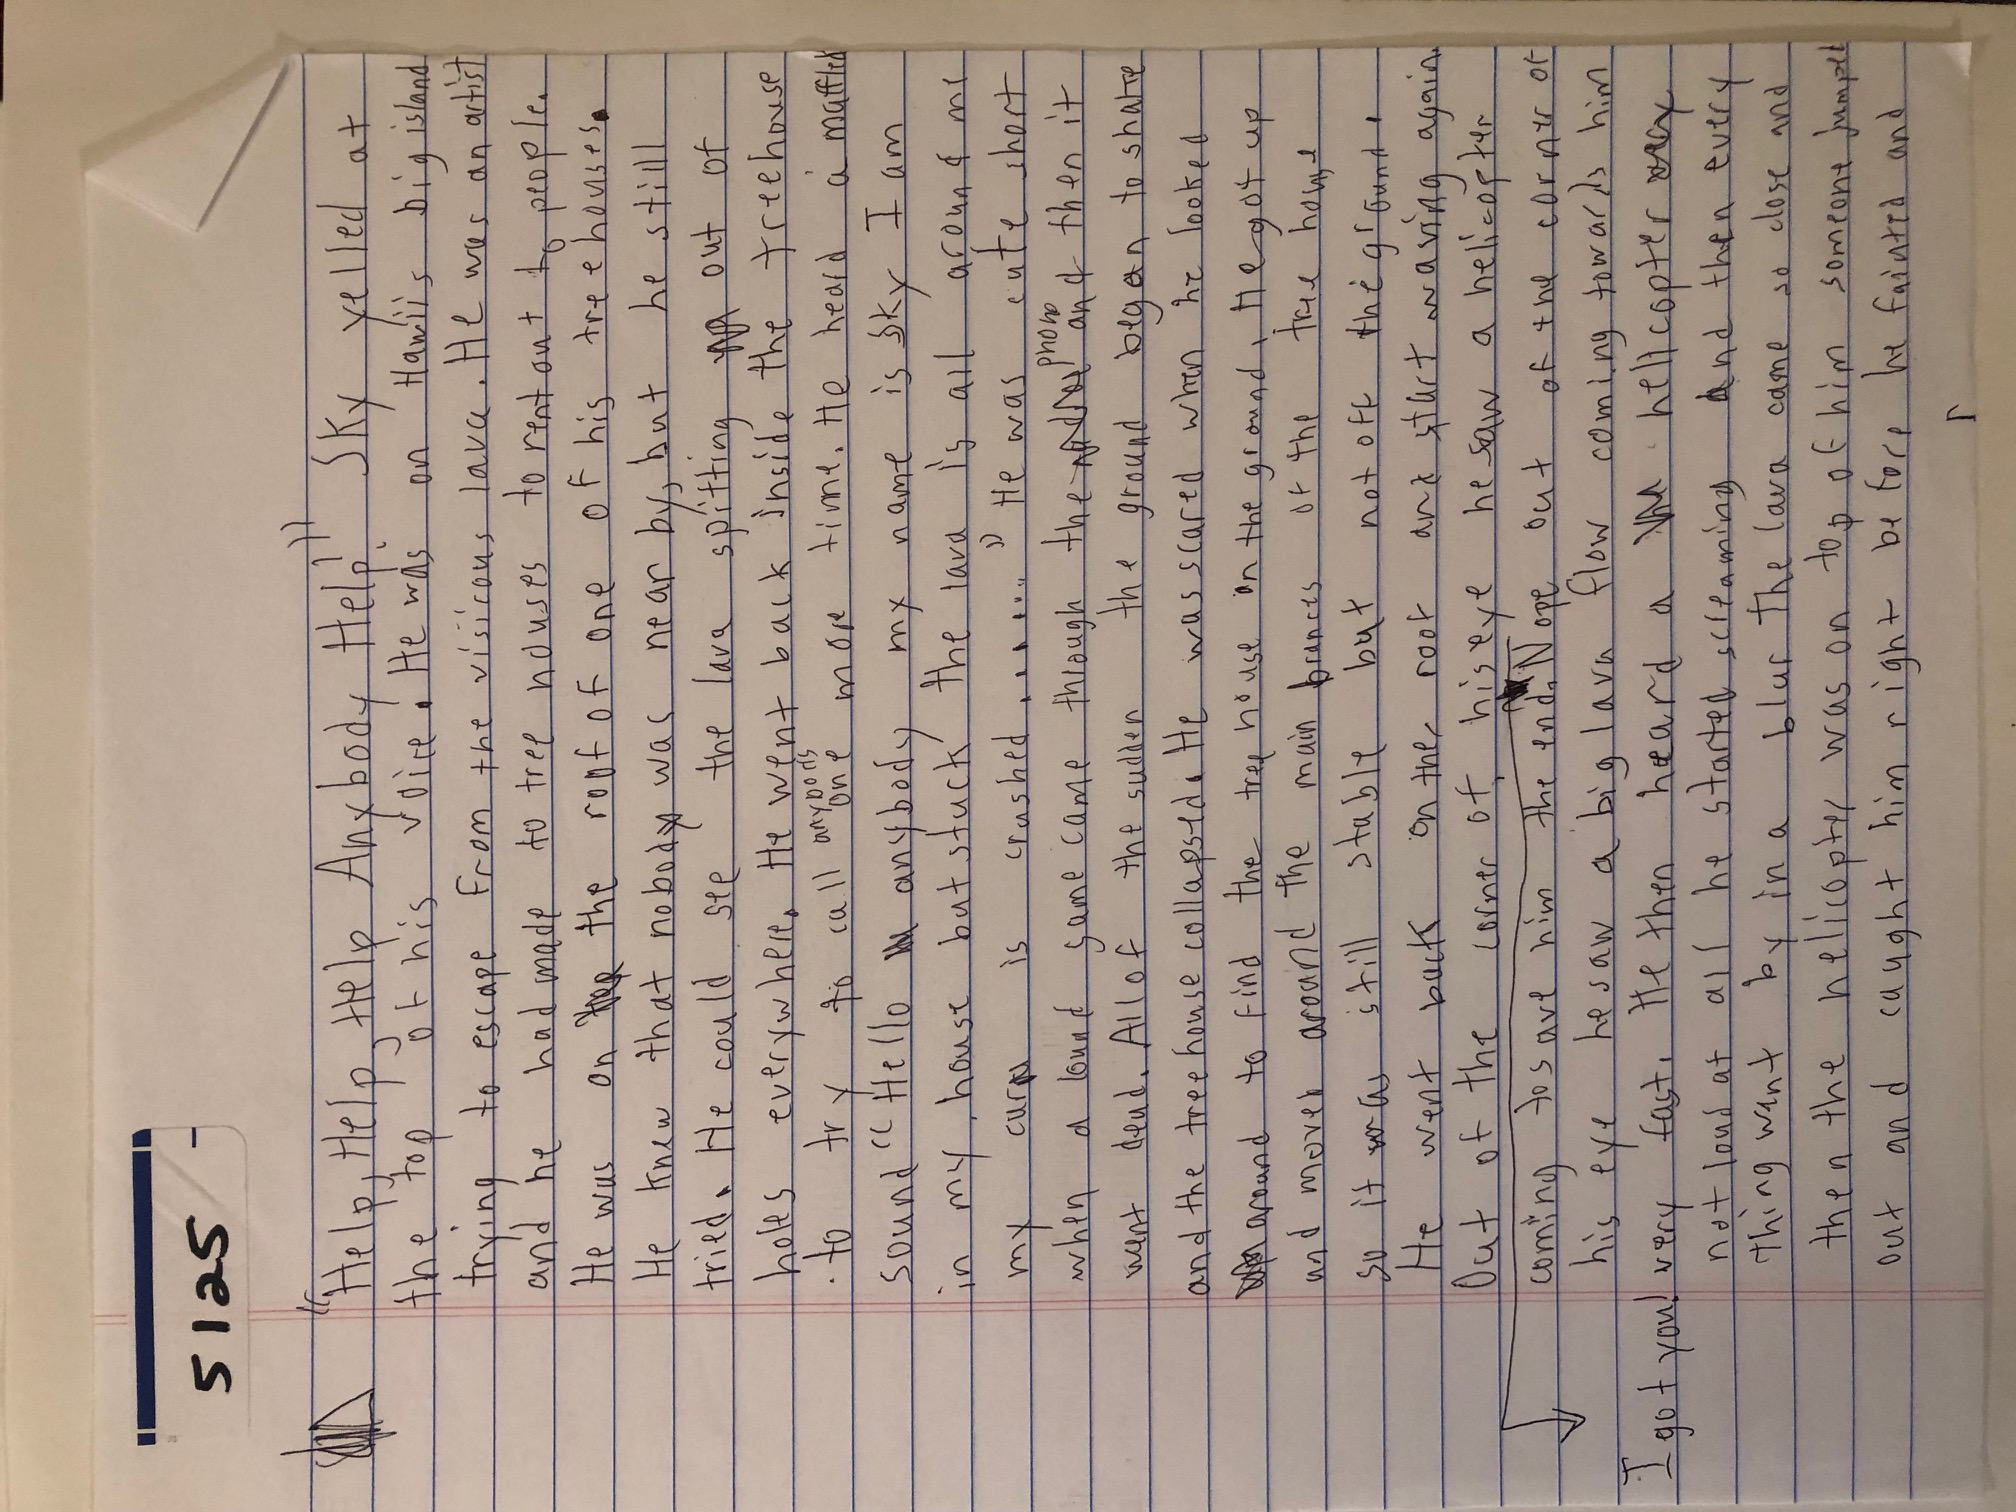 5125
"Help, Help, Help Anybody Help!" Sky yelled at
the top of his voice. He was on Hawii's big island
trying to escape from the visicous lava. He was an artist
and he had made to tree houses to rent out to people.
He was on the roof of one of his treehouses.
He knew that nobody was near by, but he still
tried. He could see the lava spitting out of
holes everywhere. He went back inside the treehouse
to try to call anybody one more time. He heard a muffled
sound "Hello anybody my name is Sky I am
in my house but stuck the lava is all around me
my car is crushed........" He was cute short
when a lound same came through the phone and then it
went dead. All of the sudden the ground began to shake
and the treehouse collapsed. He was scared when he looked
around to find the tree house on the ground. He got up
and moved around the main brances of the tree house
so it was still stable but not off the ground.
He went back on the roof and start waving again.
Out of the corner of his eye he saw a helicopter
coming to save him the end. Nope out of the corner of
his eye he saw a big lava flow coming towards him
I got you!
very fast. He then heard a helicopter
not loud at all he started screaming and then every
thing want by in a blur The lava came so close and
then the helicopter was on top of him someone jumped
out and caught him right before he fainted and
1